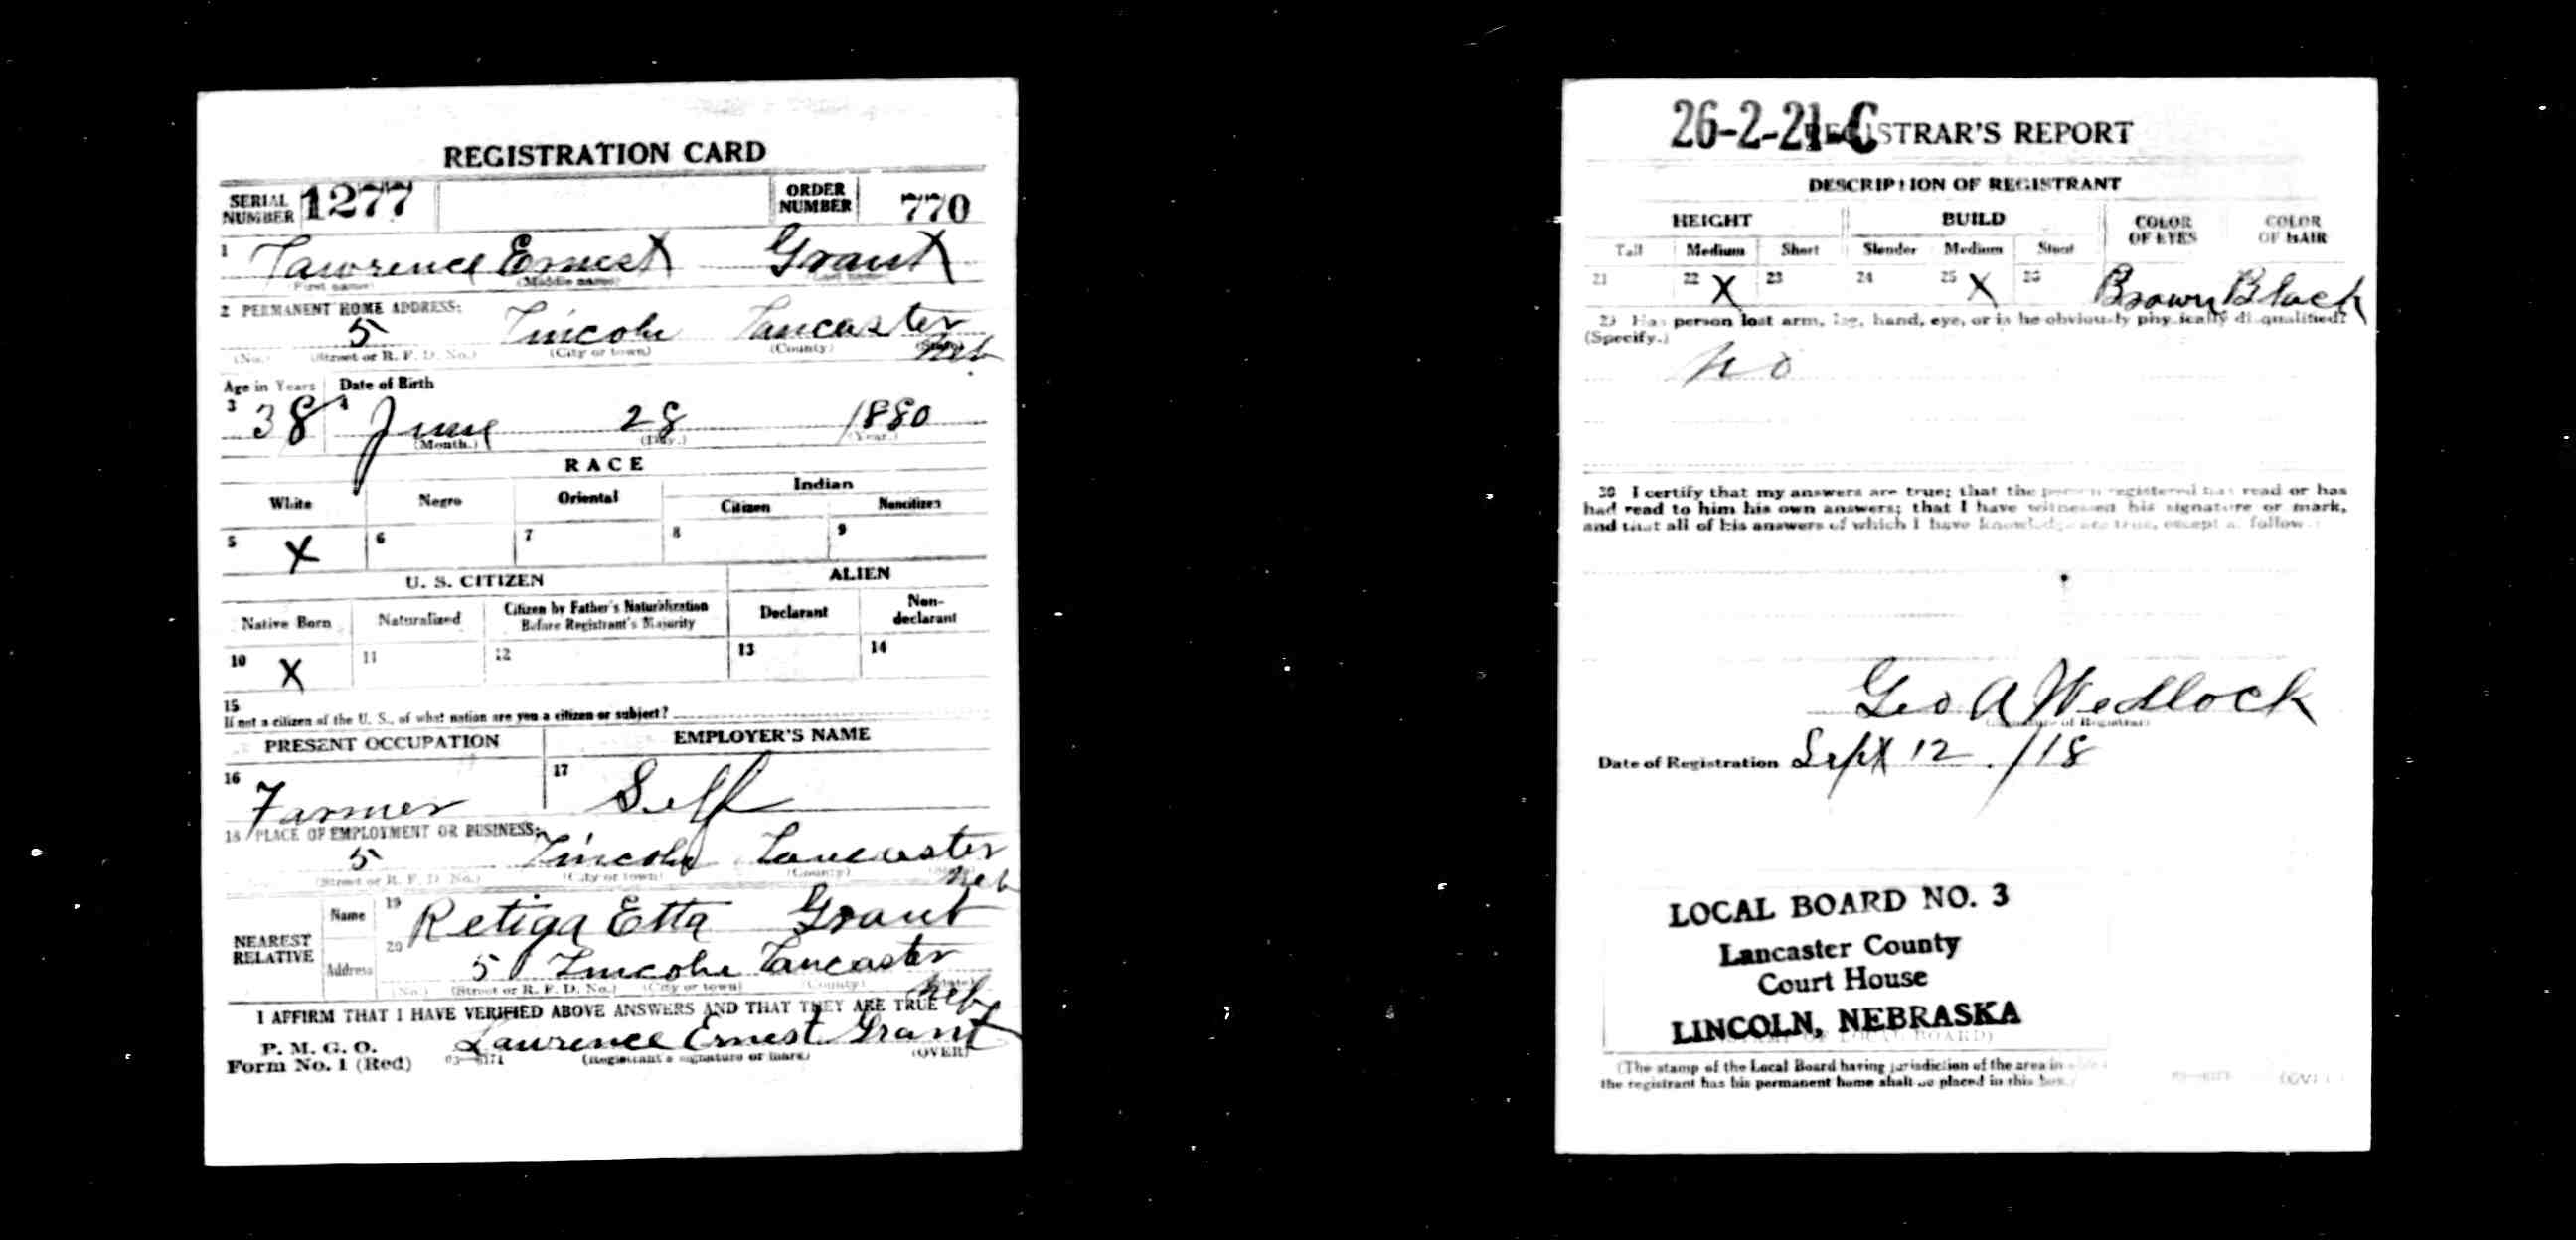 REGISTRATION CARD
SERIAL NUMBER 1277 ORDER NUMBER 770
1 Lawrence Ernest Grant
(First name) (Middle name) (Last name)
2 PERMANENT HOME ADDRESS:
5 Lincoln Lancaster Neb
(No.) (Street or R. F. D. No.) (City or town) (County) (State)
Age in Years Date of Birth
3 38 4 June 28 1880
(Month.) (Day.) (Year.)
RACE
White Negro Oriental Indian
Citizen Noncitizen
5 X 6 7 8 9
U. S. CITIZEN ALIEN
Native Born Naturalized Citizen by Father's Naturalization Before Registrant's Majority Declarant Non-declarant
10 X 11 12 13 14
15
If not a citizen of the U. S., of what nation are you a citizen or subject?
PRESENT OCCUPATION EMPLOYER'S NAME
16 Farmer 17 Self
18 PLACE OF EMPLOYMENT OR BUSINESS:
5 Lincoln Lancaster Neb
(Street or R. F. D. No.) (City or town) (County) (State)
NEAREST RELATIVE Name 19 Retiga Etta Grant
Address 20 5 Lincoln Lancaster Neb
(No.) (Street or R. F. D. No.) (City or town) (County) (State)
I AFFIRM THAT I HAVE VERIFIED ABOVE ANSWERS AND THAT THEY ARE TRUE
P. M. G. O.
Form No. 1 (Red) Lawrence Ernest Grant
03—6171 (Registrant's signature or mark) (OVER)
26-2-21-C
REGISTRAR'S REPORT
DESCRIPTION OF REGISTRANT
HEIGHT BUILD COLOR OF EYES COLOR OF HAIR
Tall Medium Short Slender Medium Stout
21 22 X 23 24 25 X 26 Brown Black
29 Has person lost arm, leg, hand, eye, or is he obviously physically disqualified?
(Specify.)
no
30 I certify that my answers are true; that the person registered has read or has
had read to him his own answers; that I have witnessed his signature or mark,
and that all of his answers of which I have knowledge are true, except as follows:
Geo A Wedlock
(Signature of Registrar)
Date of Registration Sept 12 /18
LOCAL BOARD NO. 3
Lancaster County
Court House
LINCOLN, NEBRASKA
(STAMP OF LOCAL BOARD)
(The stamp of the Local Board having jurisdiction of the area in which
the registrant has his permanent home shall be placed in this box.)
(OVER)